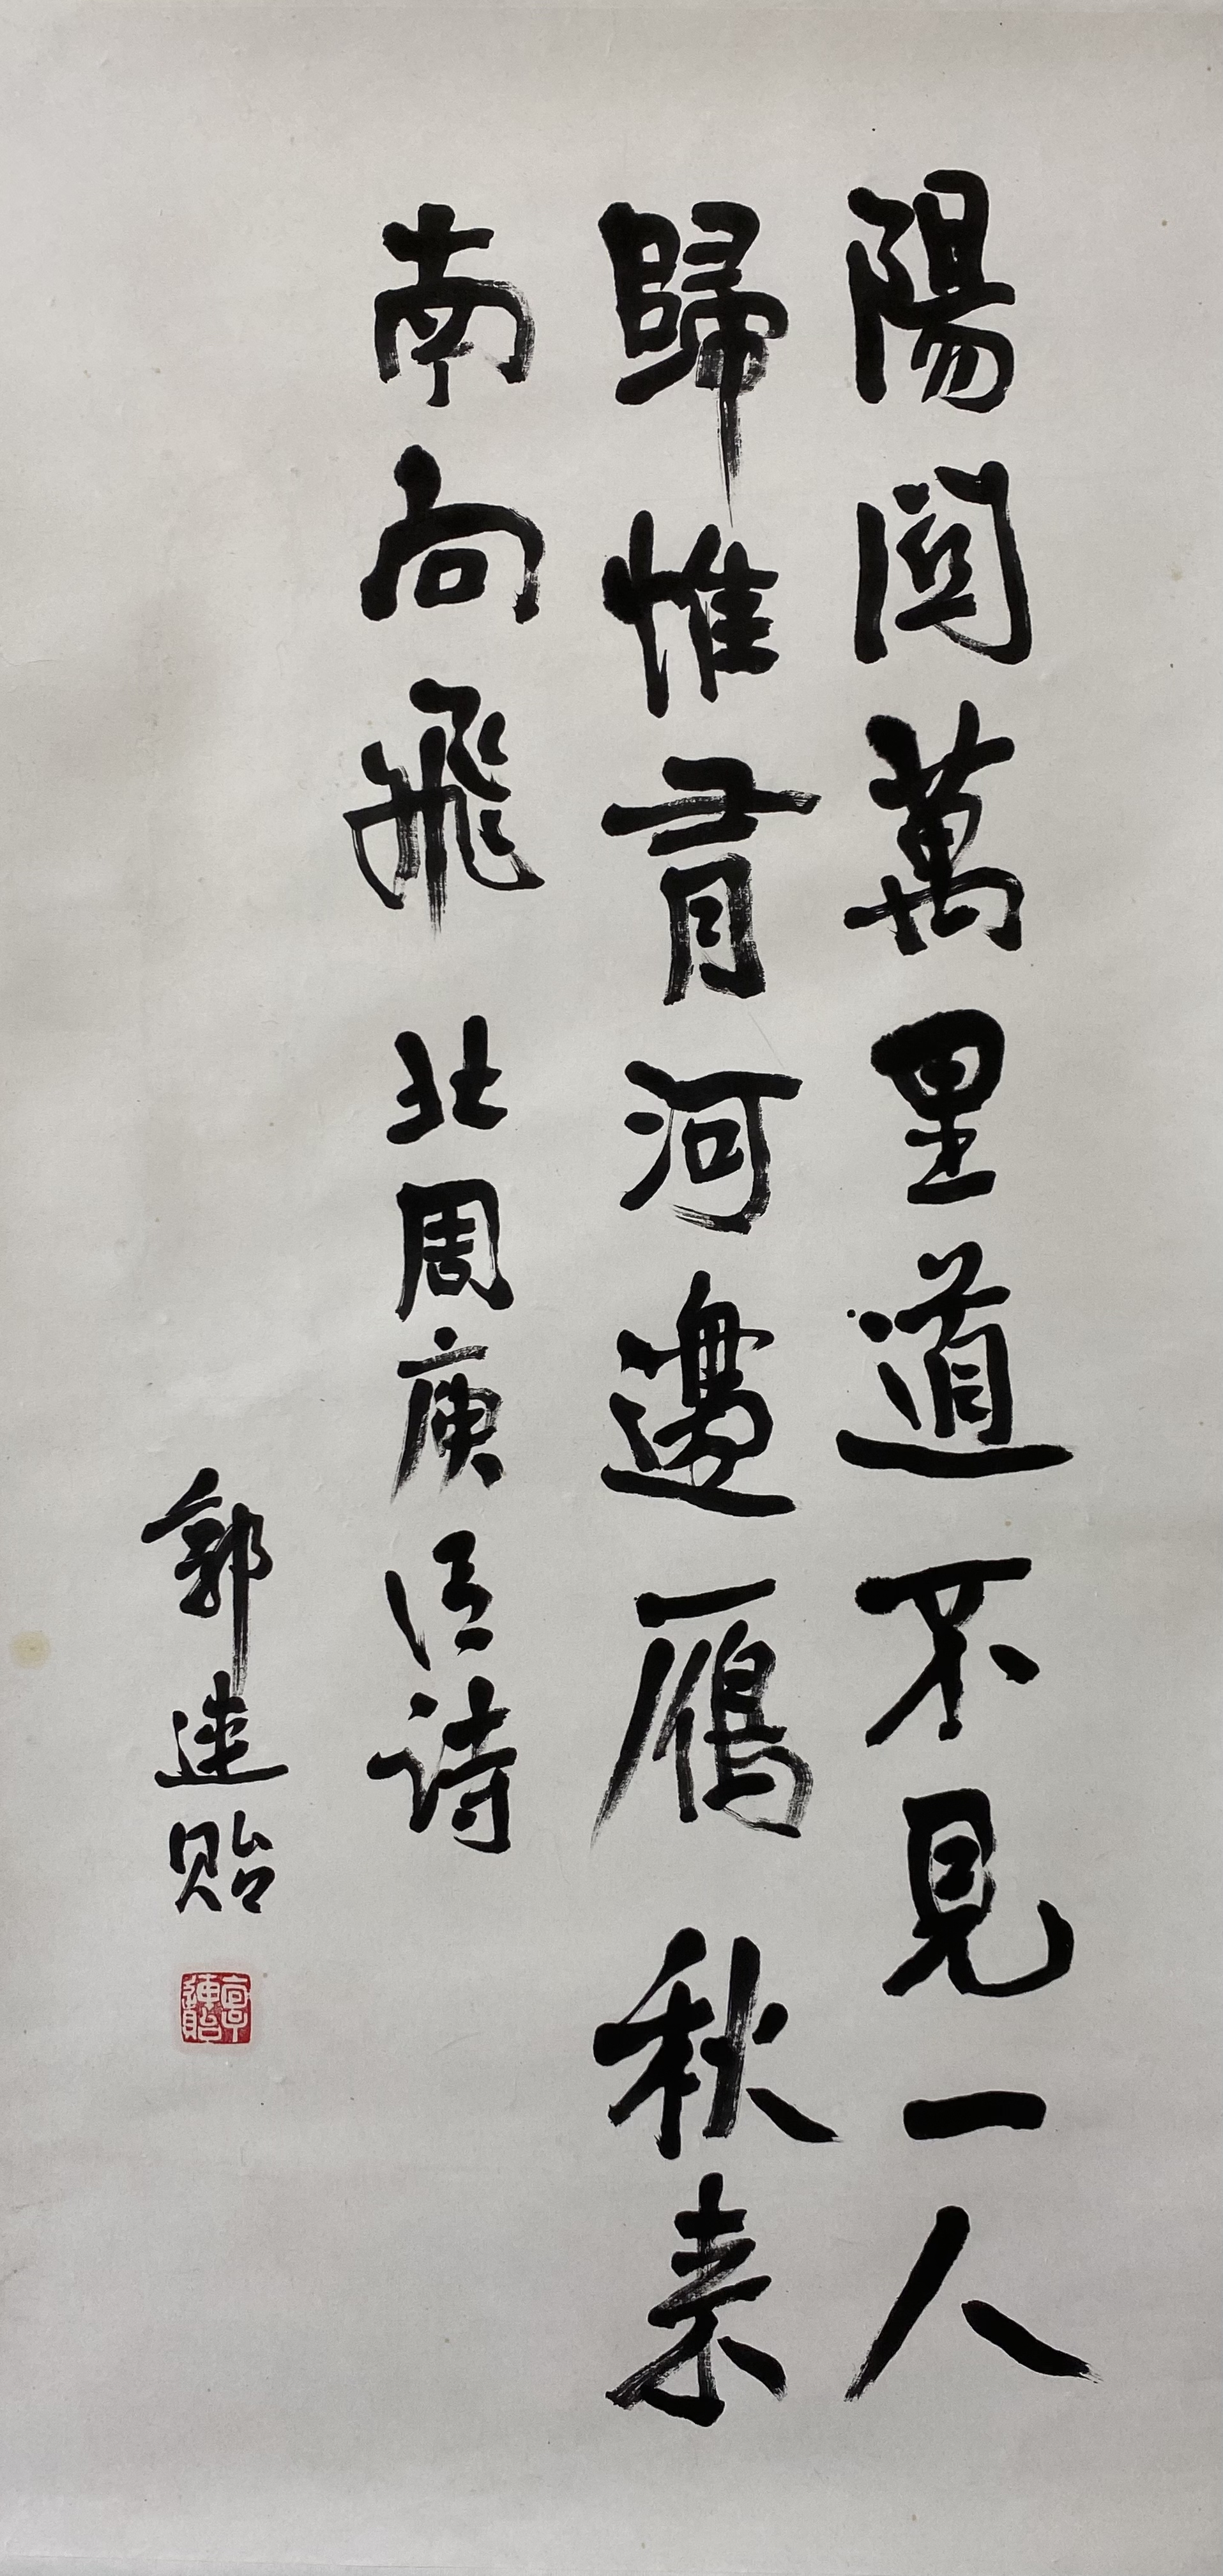 陽関萬里道不見一人
歸惟有河邊雁秋来
南向飛北周庾信詩
郭連貽
郭連貽